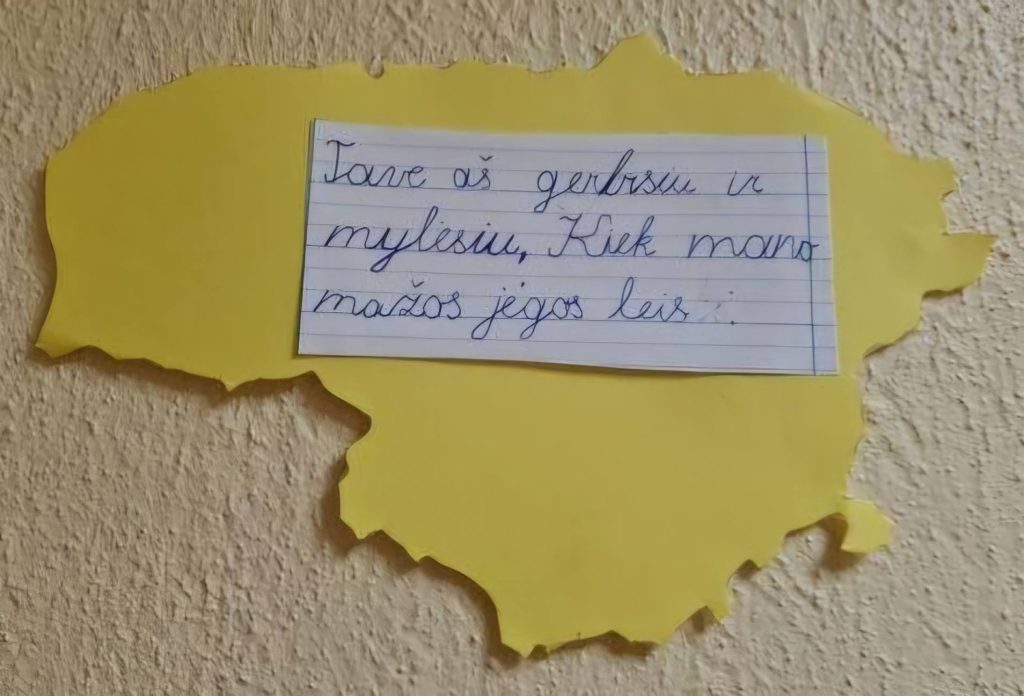 Tave aš gerbsiu ir
mylėsiu, Kiek mano
mažos jėgos leis.